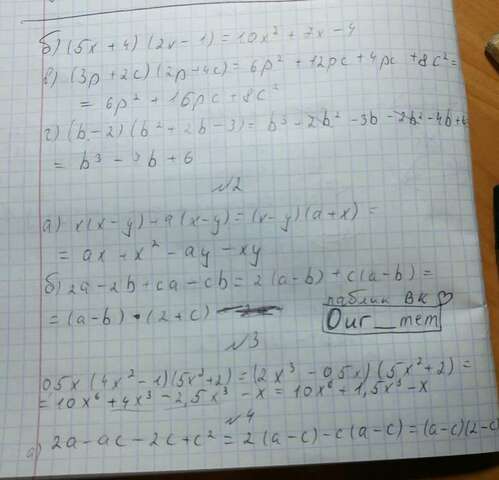 б) (5x + 4) (2x - 1) = 10x² + 7x - 4
в) (3p + 2c) (2p + 4c) = 6p² + 12pc + 4pc + 8c² =
= 6p² + 16pc + 8c²
г) (b - 2) (b² + 2b - 3) = b³ - 2b² - 3b - 2b² - 4b + 6
= b³ - 7b + 6
№2
а) x(x - y) + a(x - y) = (x - y)(a + x) =
= ax + x² - ay - xy
б) 2a - 2b + ca - cb = 2(a - b) + c(a - b) =
= (a - b) • (2 + c)
паблик ВК ♡
Оиг_mem
№3
0,5x (4x² - 1)(5x² + 2) = (2x³ - 0,5x) (5x² + 2) =
= 10x⁶ + 4x³ - 2,5x³ - x = 10x⁶ + 1,5x³ - x
№4
а) 2a - ac - 2c + c² = 2(a - c) - c(a - c) = (a - c)(2 - c)